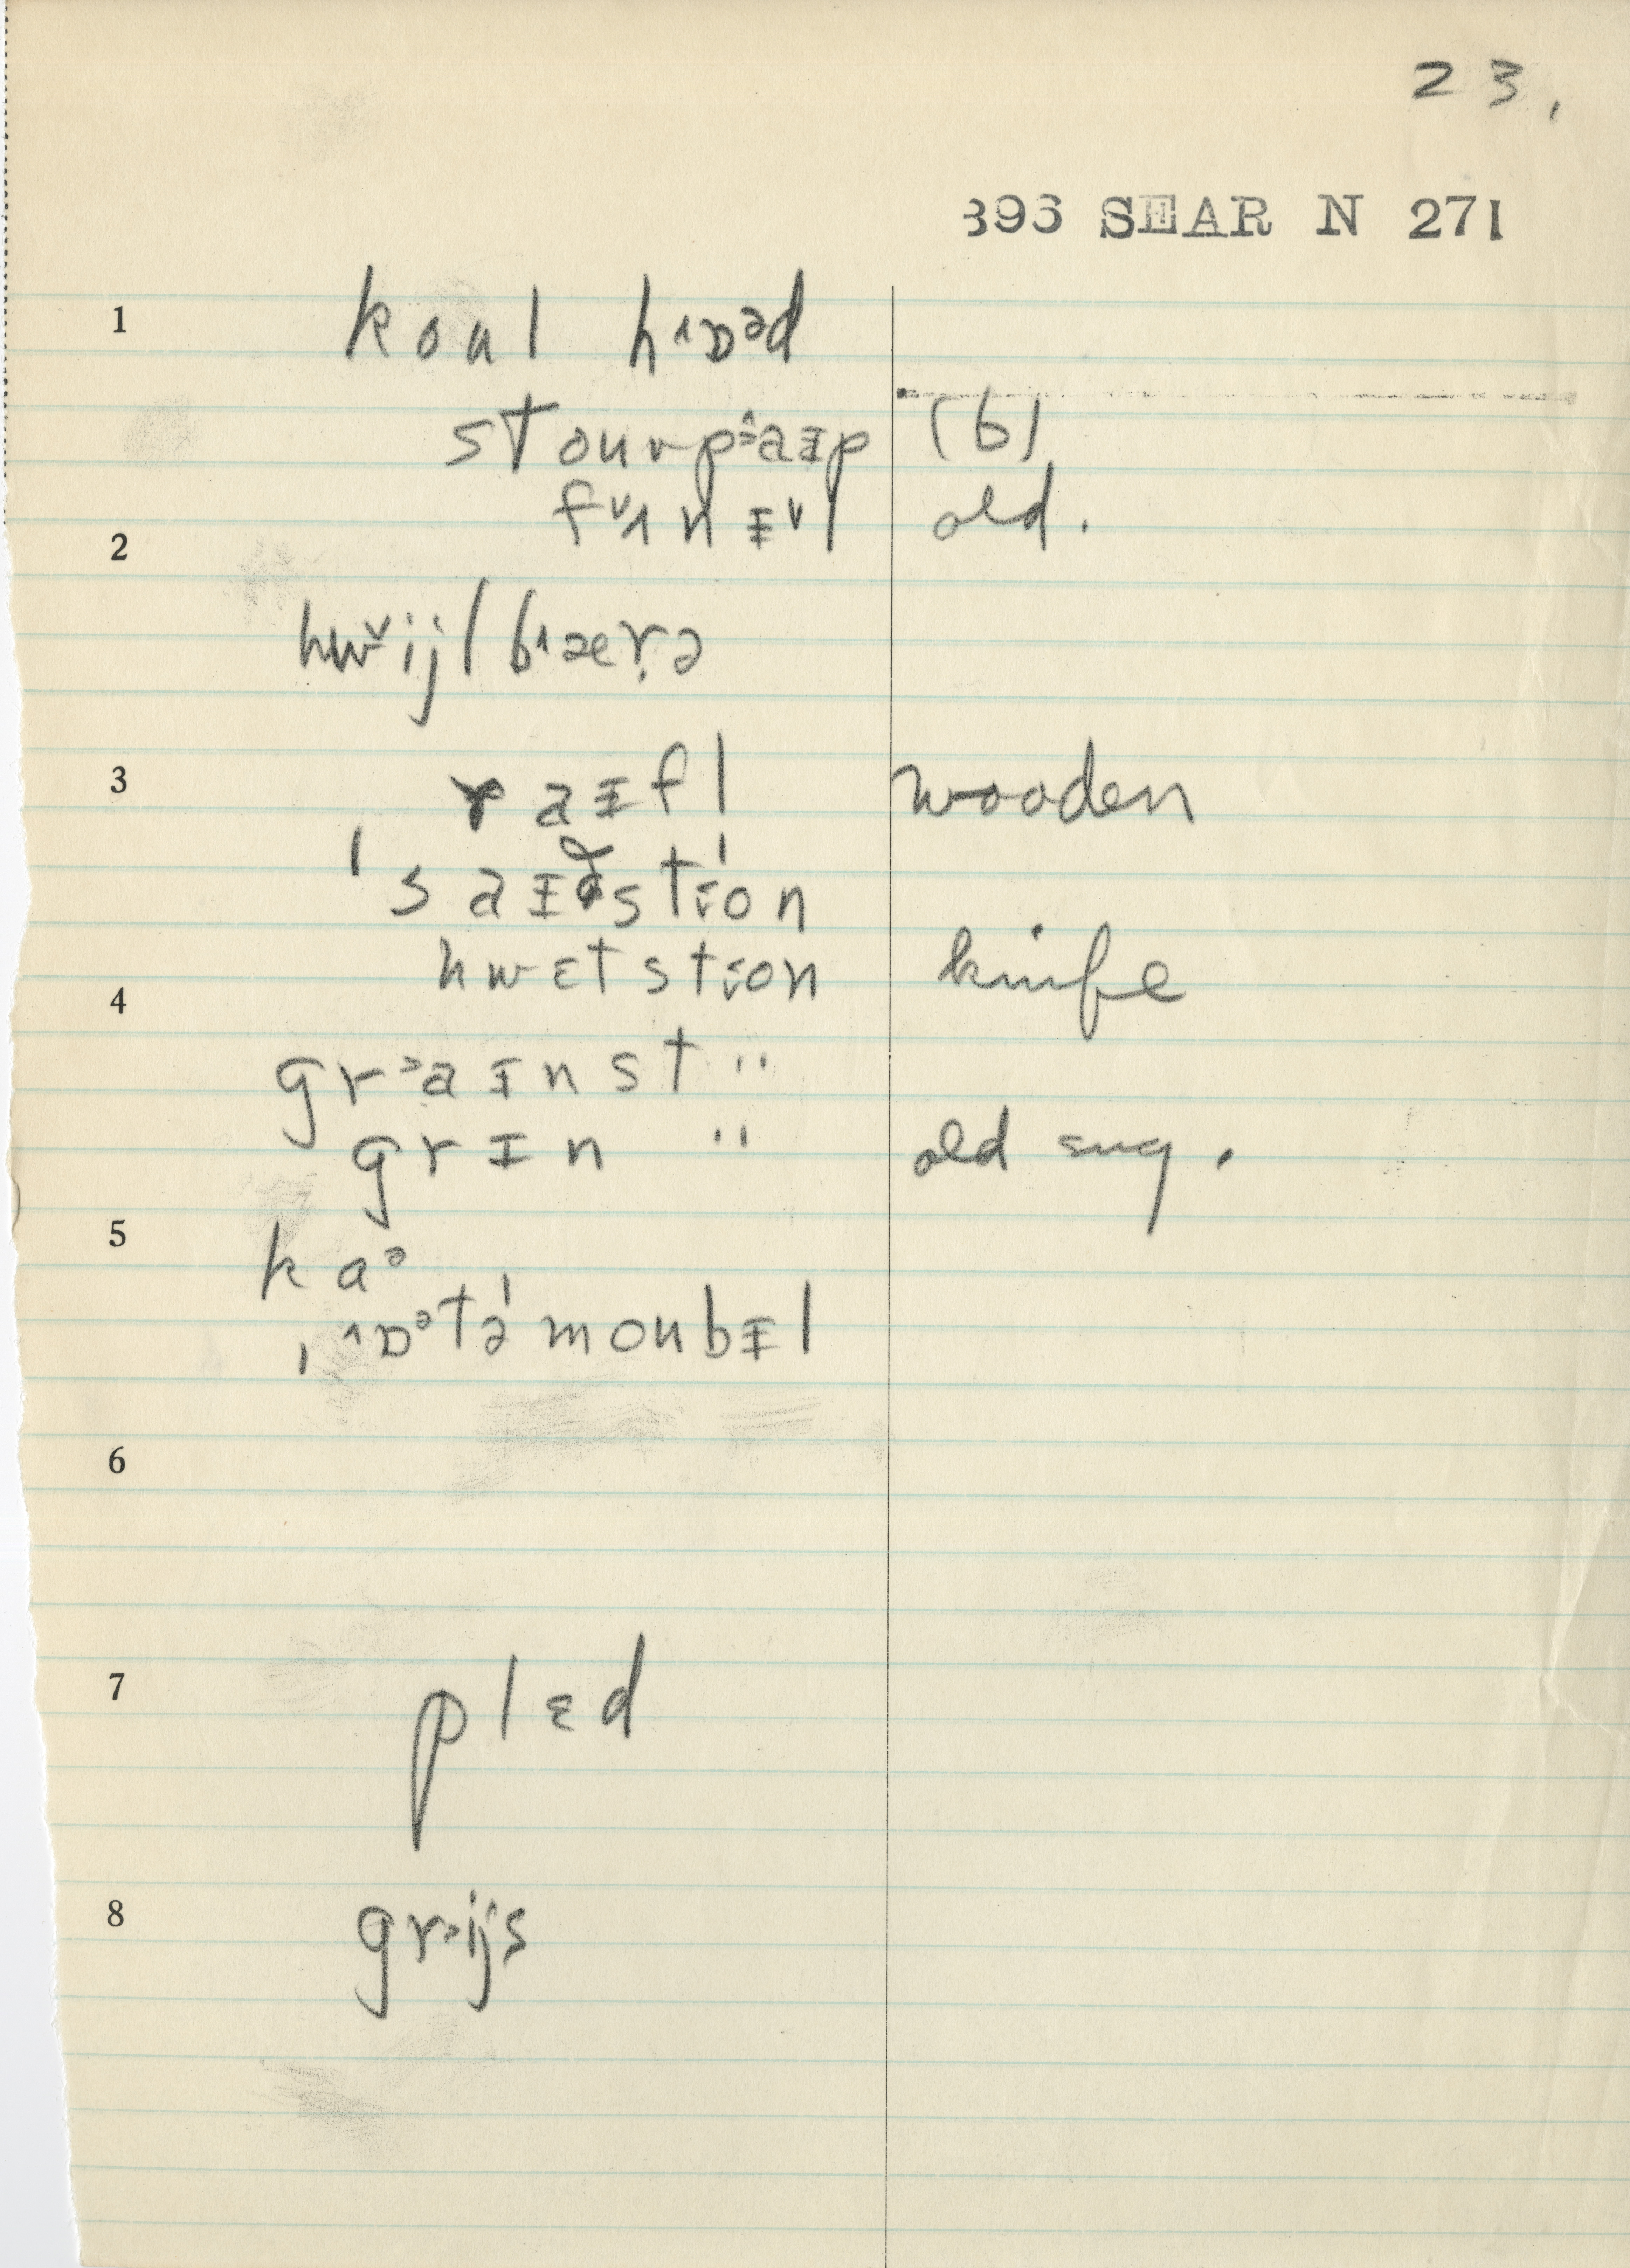 23.
396 SEAR N 271
1 koul h˄ɒᵊd
stouvpɔ̂aɪp (b)
fᵛʌnɪᵛl old.
2
hwᵛijlb˄ærə
3 raɪfl wooden
ˈsaɪðstɔ̈on
hwɛtstɔ̈on knife
4
grᵓaɪnst "
grɪn " old sug.
5
kaᵊ
ˌ˄ɒᵊtəˈmoubɪl
6
7 plɛd
8 grᵓijs